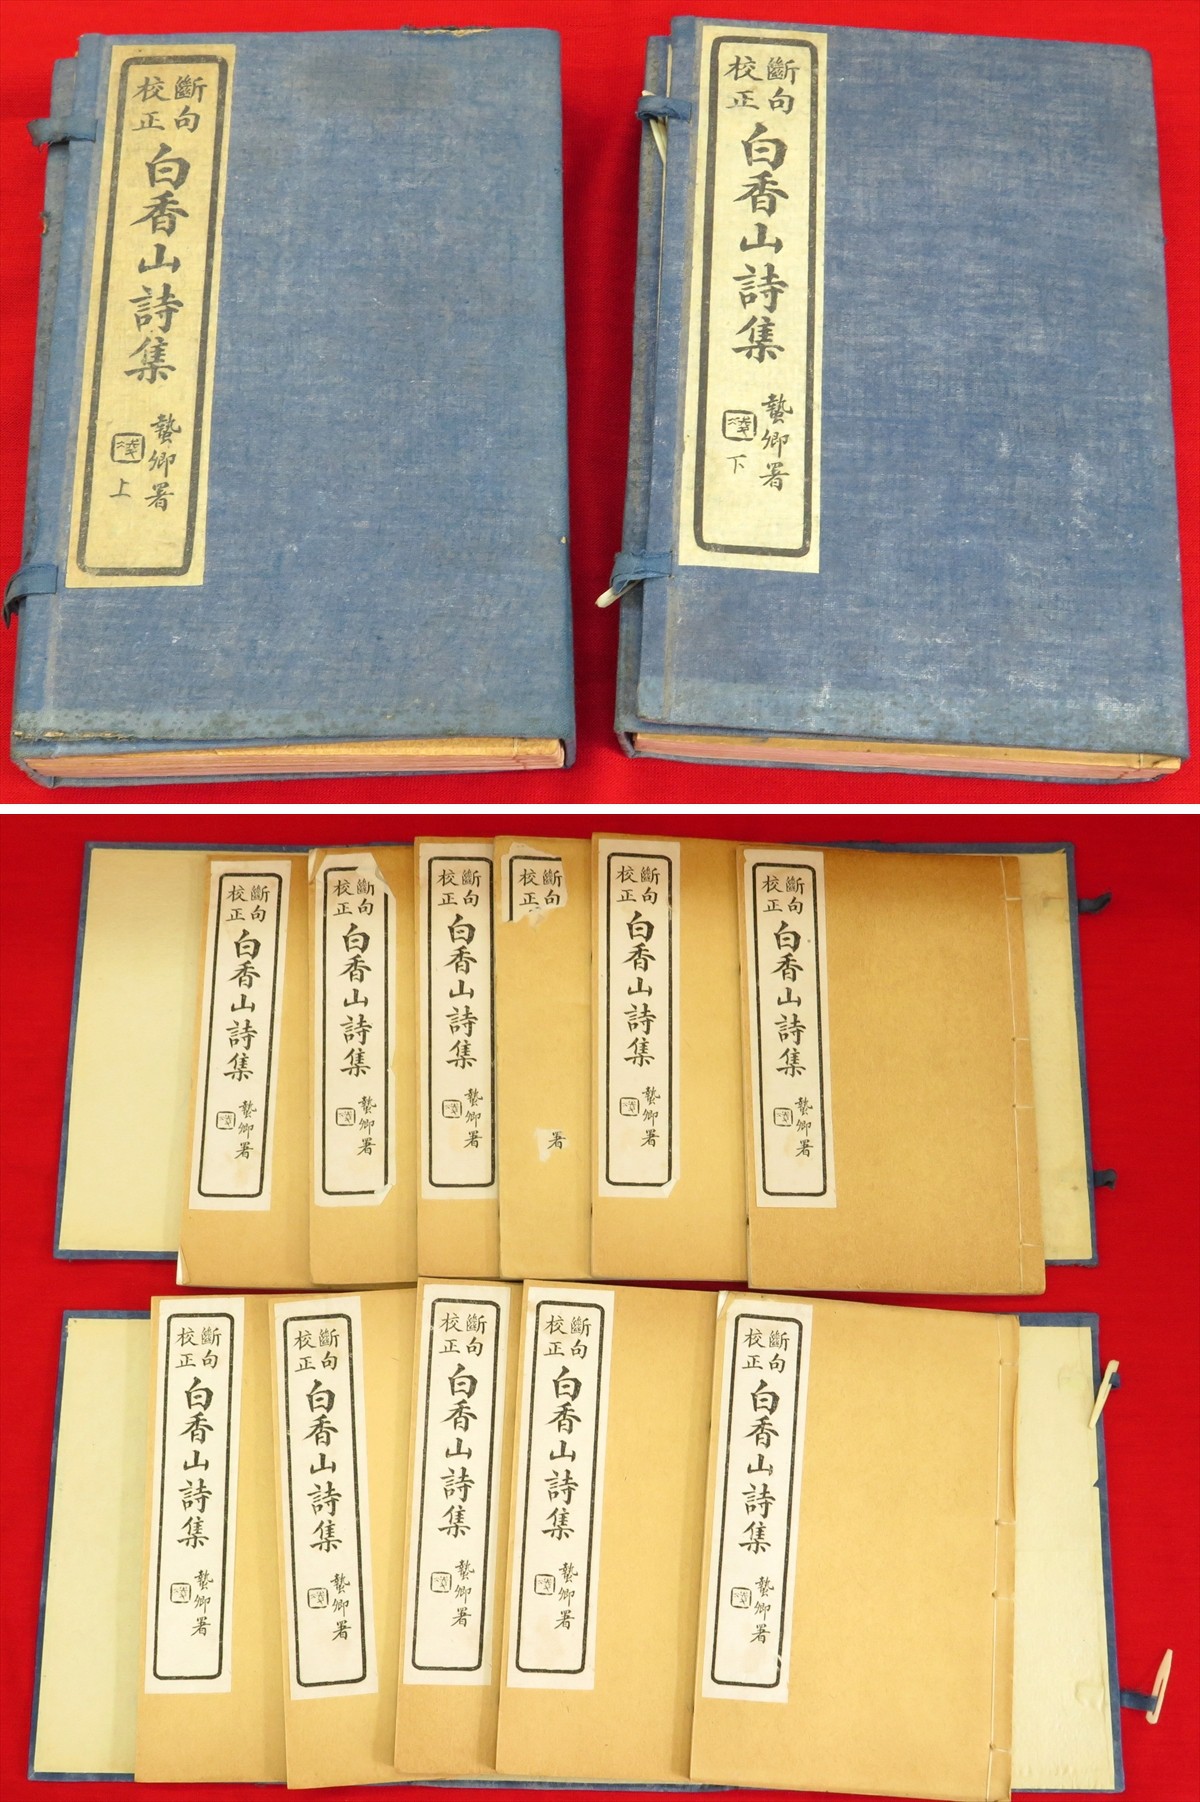 斷句
校正
白香山詩集
蟄卿署
上
斷句
校正
白香山詩集
蟄卿署
下
斷句
校正
白香山詩集
蟄卿署
斷句
校正
白香山詩集
蟄卿署
斷句
校正
白香山詩集
蟄卿署
斷句
校正
署
斷句
校正
白香山詩集
蟄卿署
斷句
校正
白香山詩集
蟄卿署
斷句
校正
白香山詩集
蟄卿署
斷句
校正
白香山詩集
蟄卿署
斷句
校正
白香山詩集
蟄卿署
斷句
校正
白香山詩集
蟄卿署
斷句
校正
白香山詩集
蟄卿署